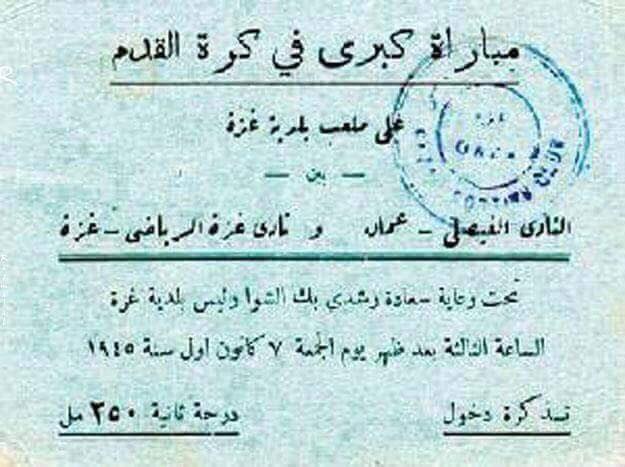 مباراة كبرى في كرة القدم
على ملعب بلدية غزة
— بين —
النادى الفيصلي - عمان و نادى غزة الرياضى - غزة
تحت رعاية سعادة رشدي بك الشوا رئيس بلدية غزة
الساعة الثالثة بعد ظهر يوم الجمعة ٧ كانون اول سنة ١٩٤٥
تذكرة دخول درجة ثانية ٢٥٠ مل
غزة
CLUB